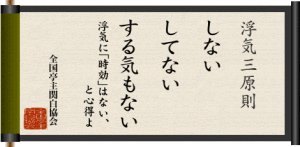 浮気三原則
しない
してない
する気もない
浮気に「時効」はない、
と心得よ
全国亭主関白協会